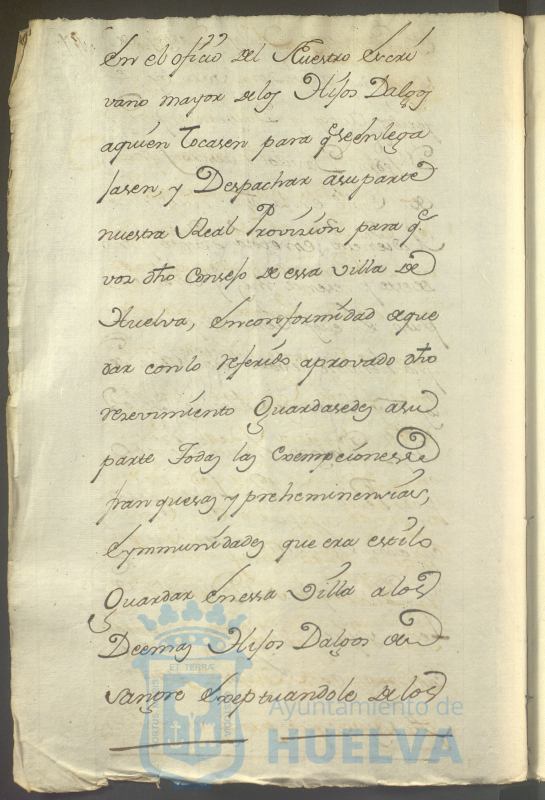 En el oficio del Nuestro Escri
vano mayor de los Hijos Dalgos
aquien tocasen para q. seenlega
jasen, y Despachar asuparte
nuestra Real Provision para q.
vos dho Consejo de essa villa de
Huelva, enconformidad aque
dar con lo referido aprovado dho
rezevimiento Guardasedes asu
parte Todas las Exempciones
franquesas y preheminencias,
Eymmunidades que era estilo
Guardar Enessa Villa a los
Demas Hijos Dalgos de
sangre Exeptuandole de los
ET TERRÆ
Ayuntamiento de
HUELVA